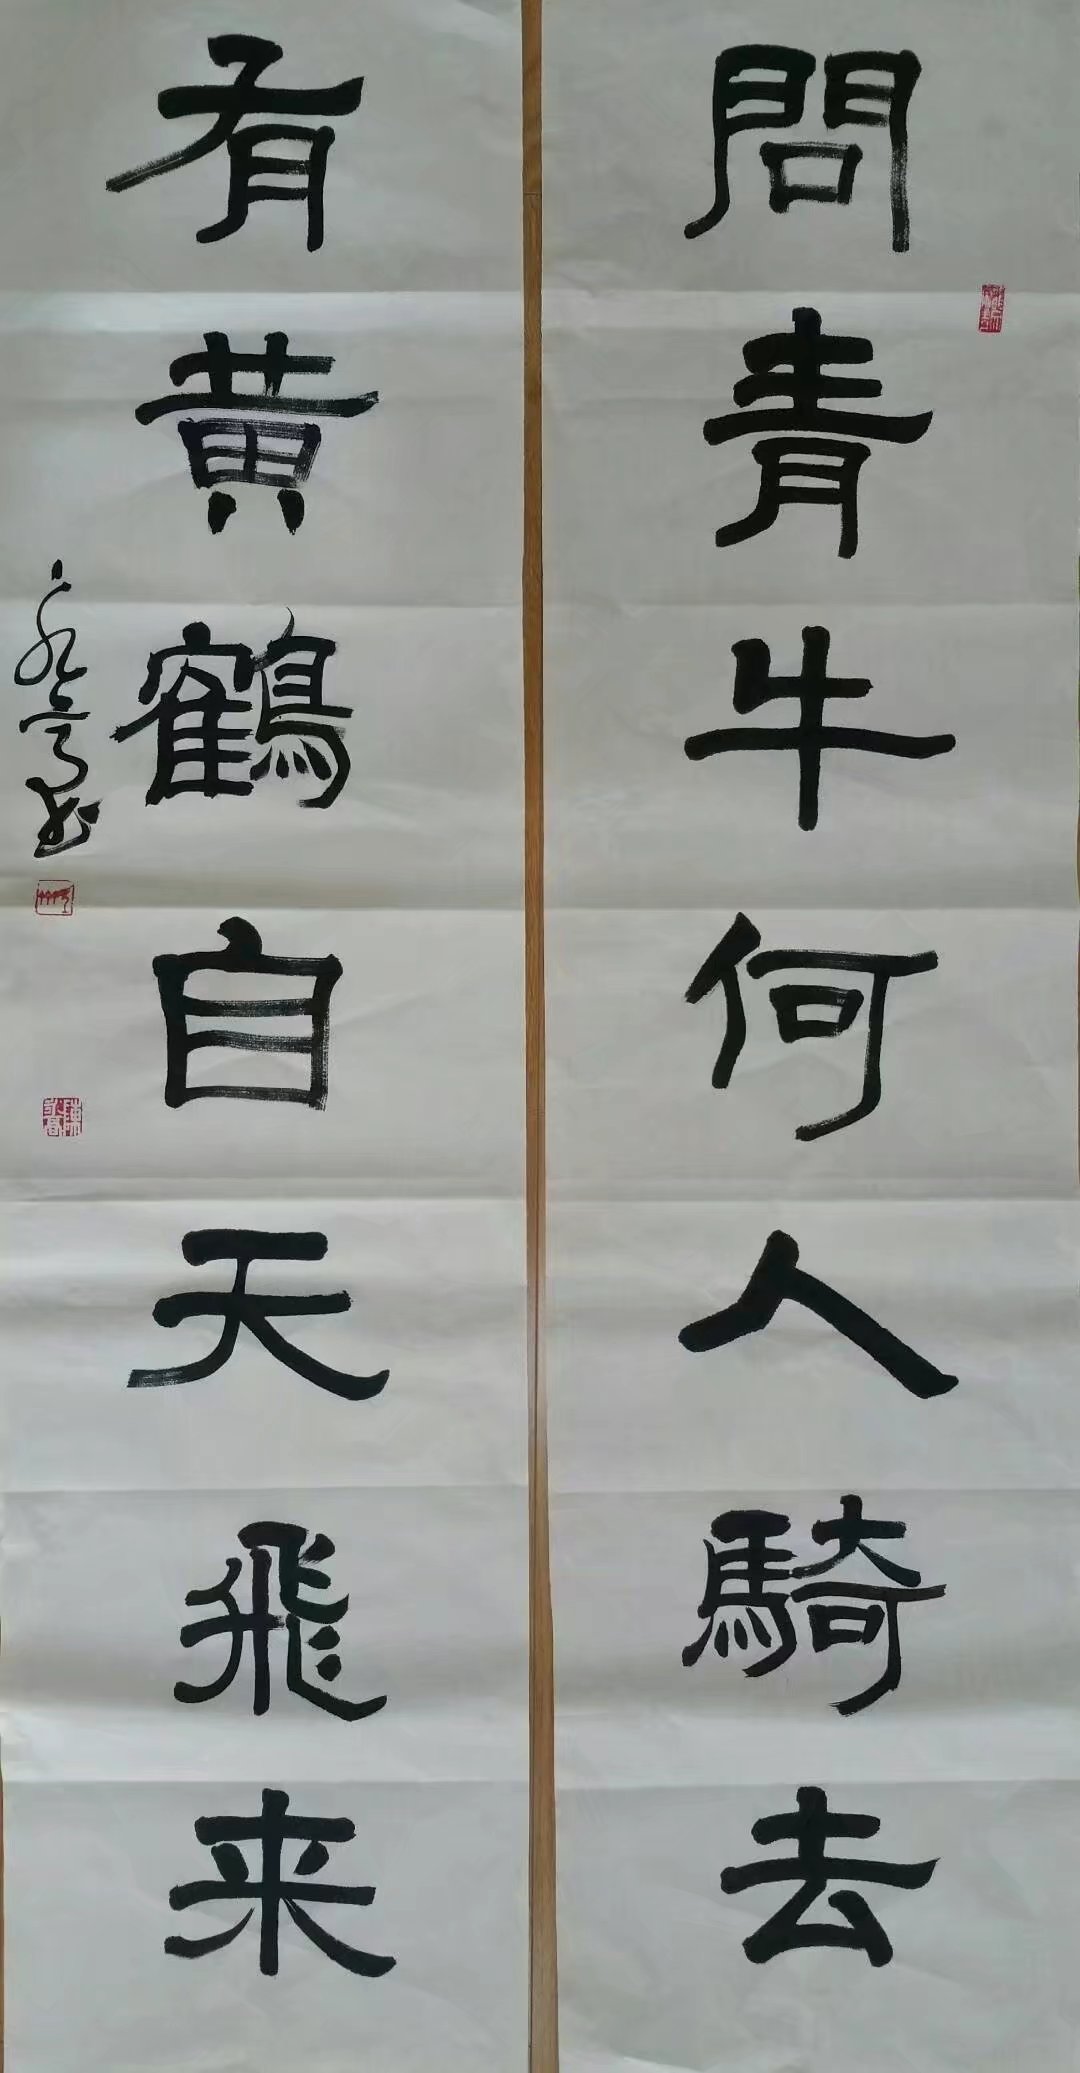 問青牛何人騎去
有黄鶴自天飛来